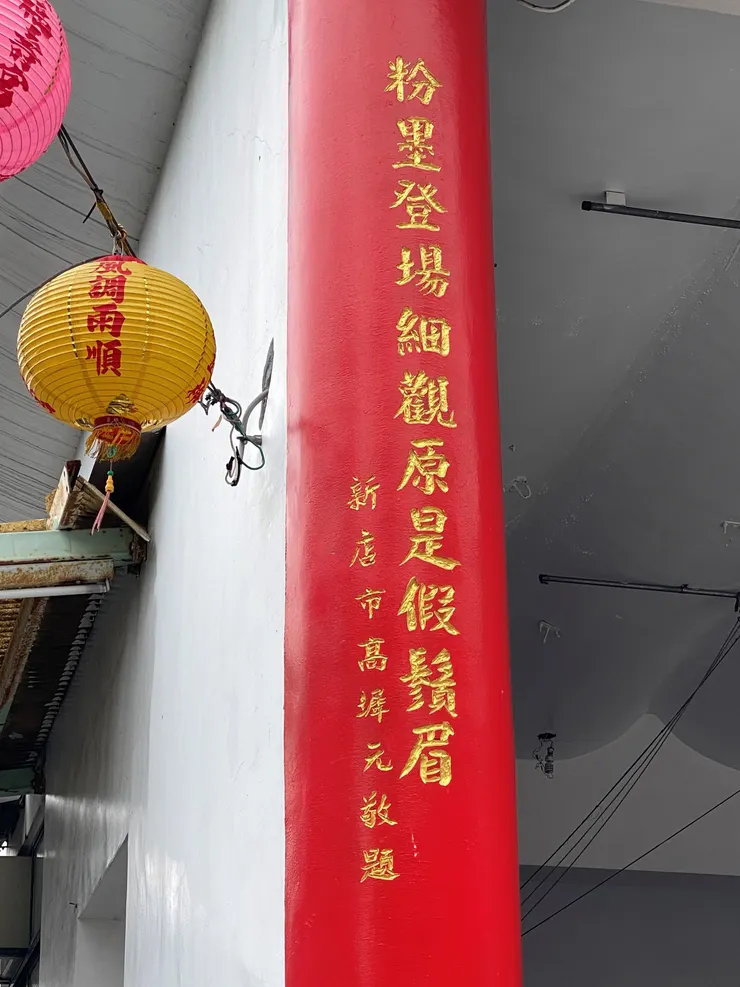 粉墨登場細觀原是假鬚眉
新店市高墀元敬題
風調雨順